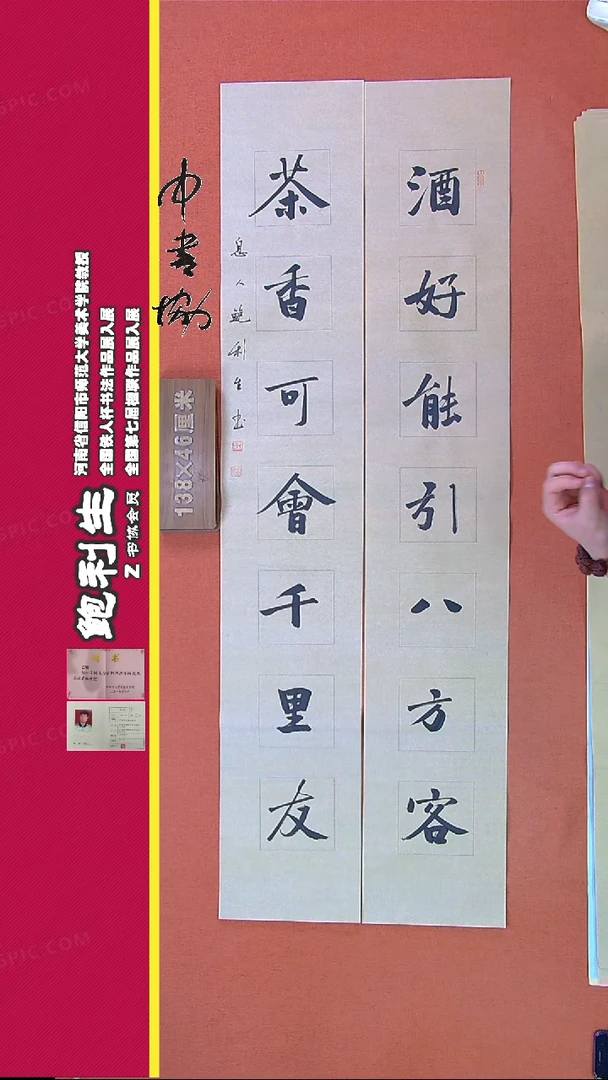 酒好能引八方客
茶香可會千里友
息人鲍利生书
中书协
138×46厘米
鲍利生
Z 书协会员
河南省信阳市师范大学美术学院教授
全国铁人杯书法作品展入展
全国第七届楹联作品展入展